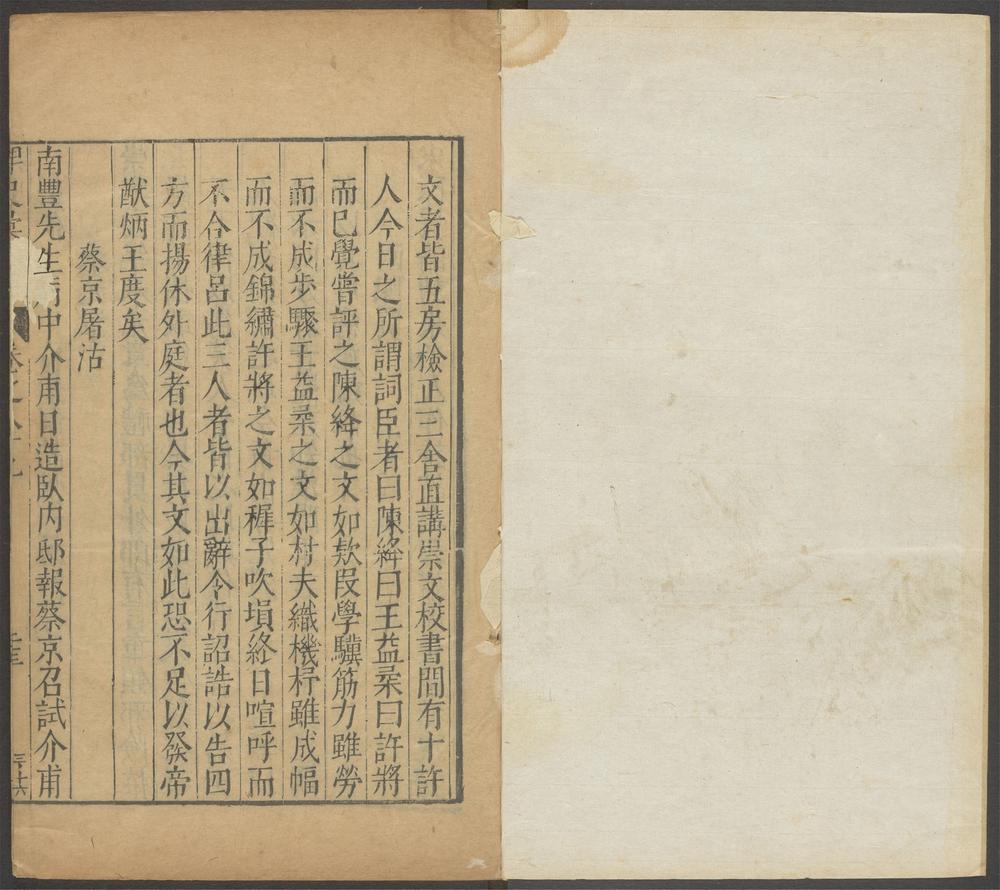 文者皆五房檢正三舍直講崇文校書間有十許
人今日之所謂詞臣者曰陳絳曰王益柔曰許將
而已覺嘗評之陳絳之文如欵段學驥筋力雖勞
而不成步驟王益柔之文如村夫織機杼雖成幅
而不成錦繡許將之文如稺子吹塤終日喧呼而
不合律呂此三人者皆以出辭令行詔誥以告四
方而揚休外庭者也今其文如此恐不足以發帝
猷炳王度矣
蔡京屠沽
南豐先生 中介甫日造臥内邸報蔡京召試介甫
卷之八十